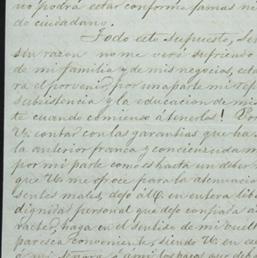 no podrá estar conforme jamas ni
de ciudadano.
Todo esto supuesto, Se
sin razon no me veré sufriendo
de mi familia y de mis negocios, est
ra el porvenir, por una parte mi rep
subsistencia y la educacion de mis
te cuando comienso á tenerlos! Por
V. contar con las garantias que ha
la anterior franca y concienzuda m
por mi parte como es hasta un deber
que V. me frece para la atenuacio
sentes males, dejo á V. en entera lib
dignidad personal que dejo confiada a
racter, haga en el sentido de mi vuelt
paresca conveniente, siendo V. en